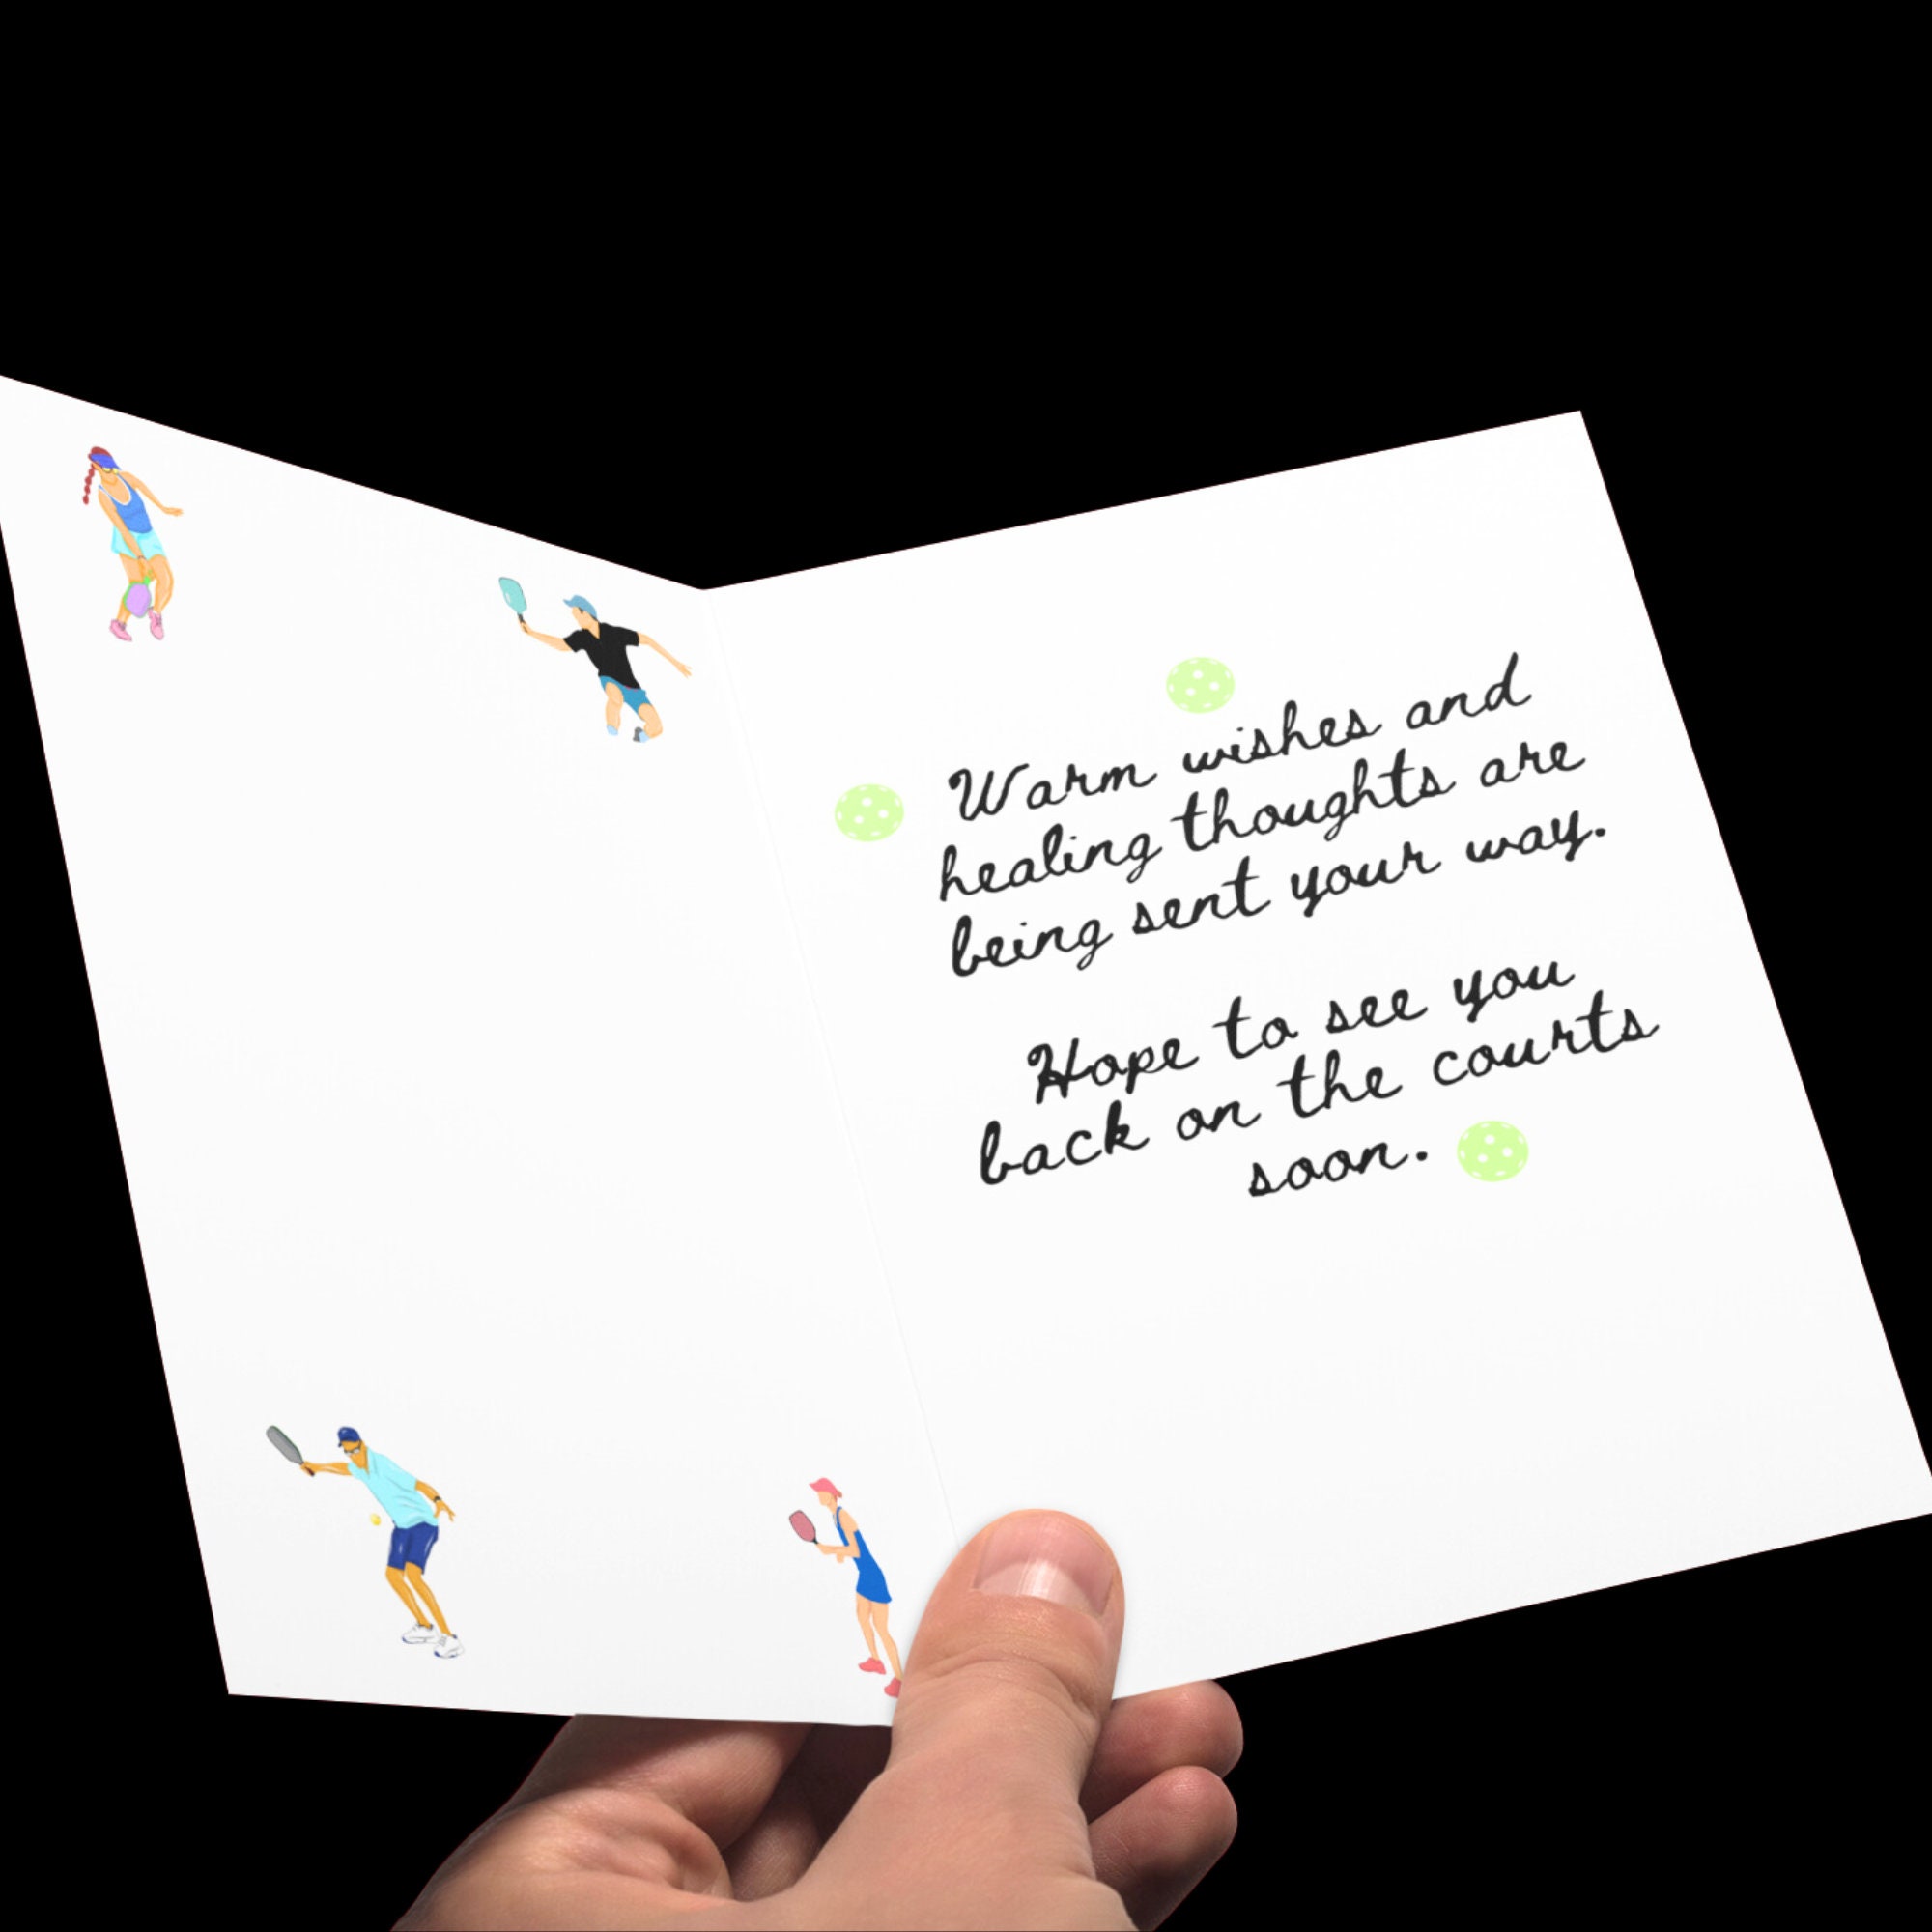 Warm wishes and
healing thoughts are
being sent your way.
Hope to see you
back on the courts
soon.